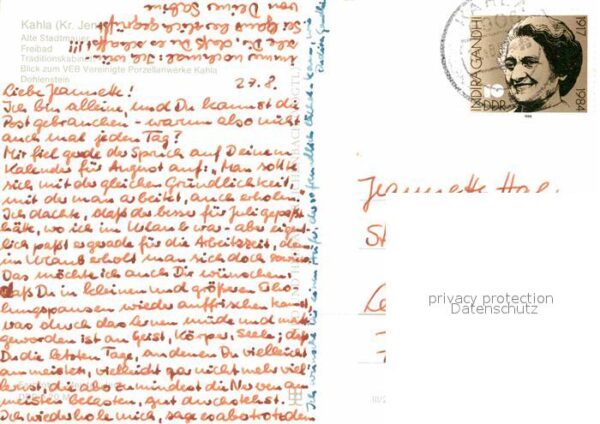 Kahla (Kr. Jena)
Alte Stadtmauer
Freibad
Traditionskabinett
Blick zum VEB Vereinigte Porzellanwerke Kahla
Dohlenstein
27.8.
Liebe Jeannette!
Ich bin alleine, und Du kannst die
Post gebrauchen – warum also nicht
auch mal jeden Tag?
Mir fiel gerade der Spruch auf Deinem
Kalender für August auf: „Man sollte
sich mit der gleichen Gründlichkeit,
mit der man arbeitet, auch erholen."
Ich dachte, daß der besser für Juli gepaßt
hätte, wo ich im Urlaub war – aber eigent-
lich paßt er gerade für die Arbeitszeit, denn
im Urlaub erholt man sich doch sowieso.
Das möchte ich auch Dir wünschen,
daß Du in kleinen und größeren Erho-
lungspausen wieder auffrischen kannst,
was durch das Lernen müde und matt
geworden ist an Geist, Körper, Seele; daß
Du die letzten Tage, an denen Du vielleicht
am meisten, vielleicht gar nicht mehr viel
lernst, die aber zumindest die Nerven am
meisten belasten, gut durchstehst.
Ich wiederhole mich, sage es aber trotzdem
noch einmal: Ich wünsche
Dir, daß Du es schaffst!!!
Sei ganz herzlich gegrüßt
von Deiner Sabine
Jeannette
KAHLA
INDIRA GANDHI
1917
1984
10
DDR
1986
privacy protection
Datenschutz